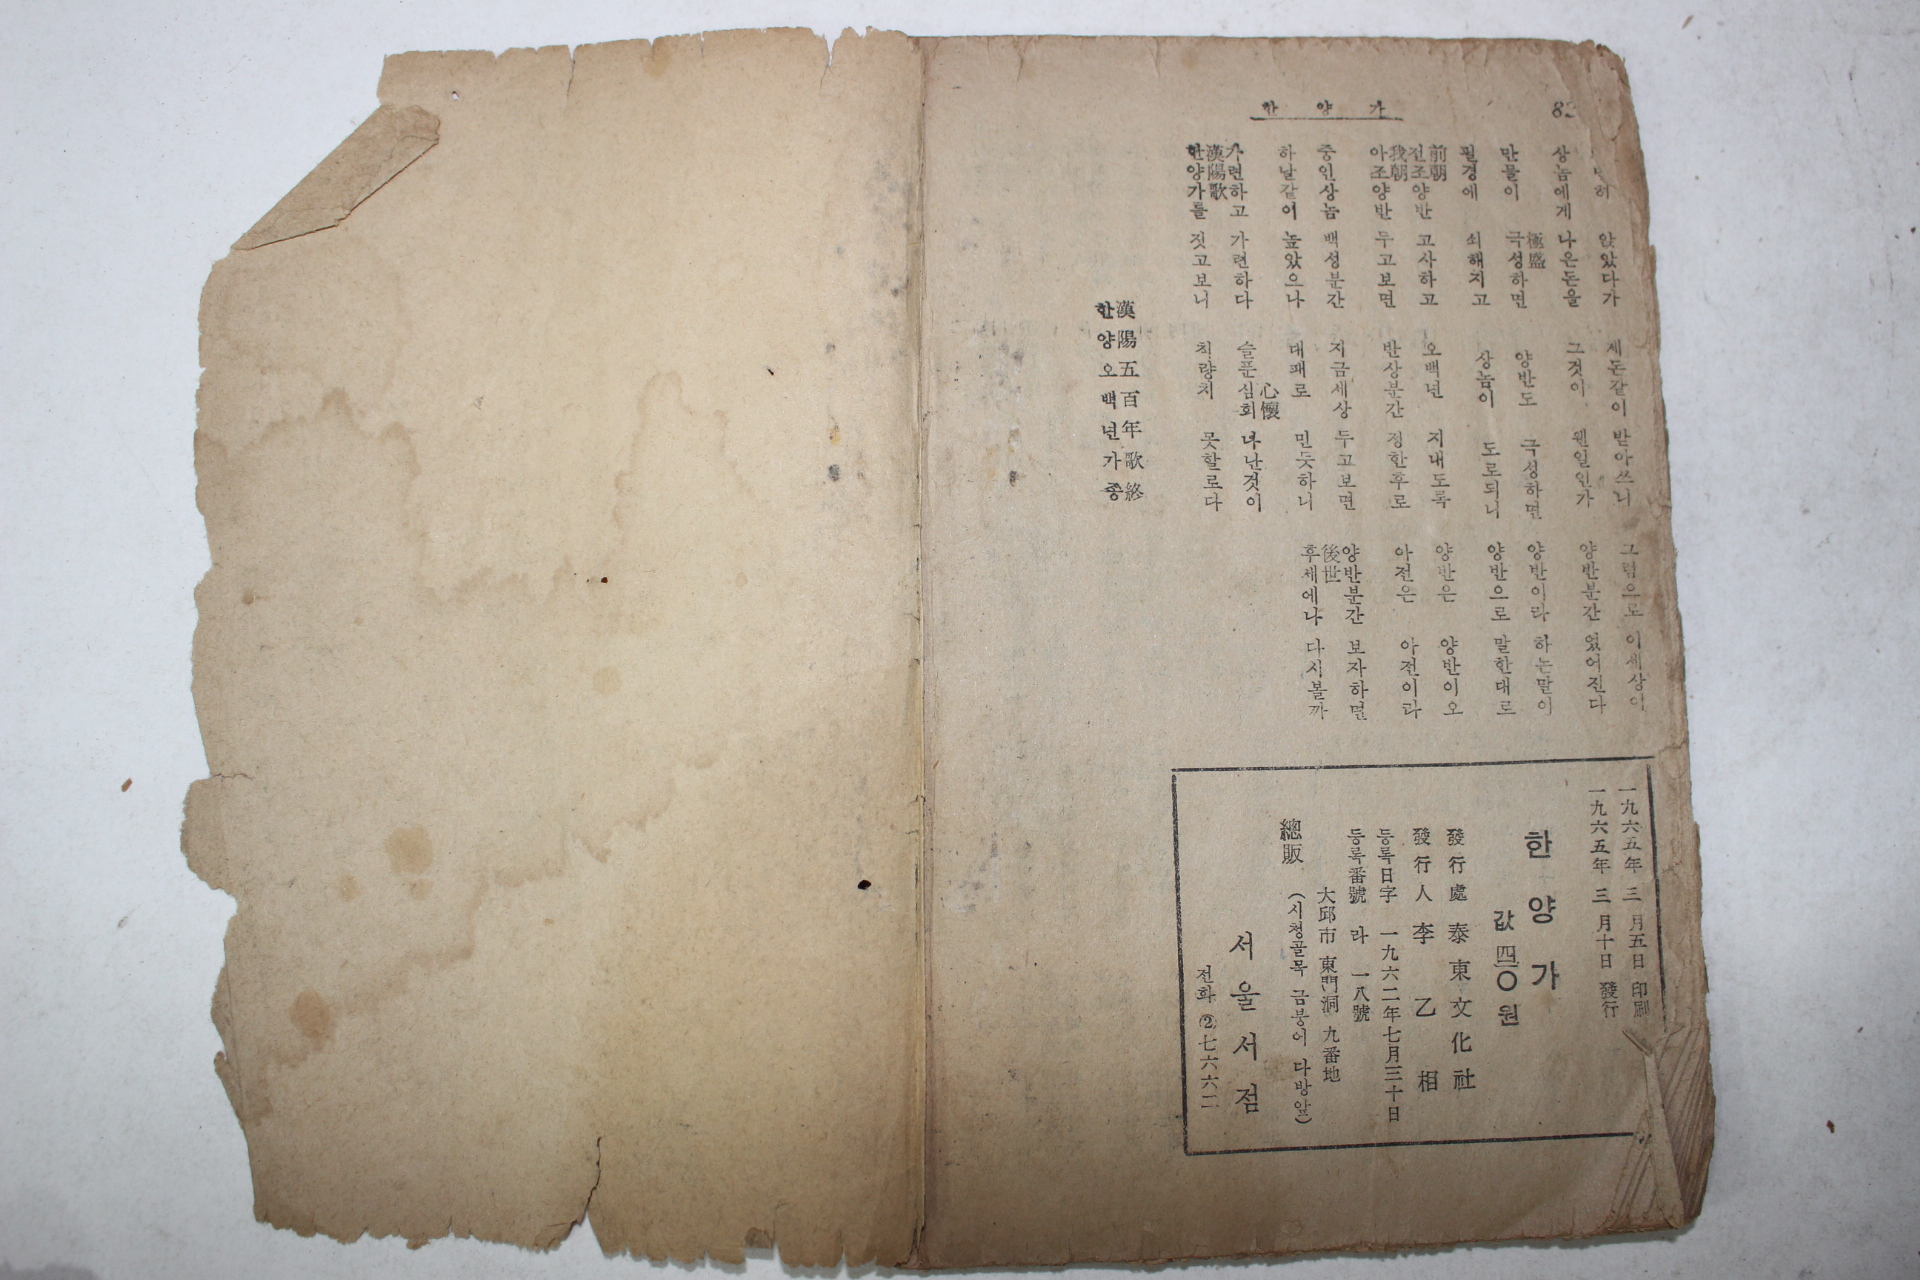 한양가
앉았다가 제돈같이 받아쓰니 그럼으로 이세상이
상놈에게 나은돈을 그것이 웬일인가 양반분간 없어진다
만물이 극성하면 양반도 극성하면 양반이라 하는말이
極盛
필경에 쇠해지고 상놈이 도로되니 양반으로 말한대로
전조양반 고사하고 오백년 지내도록 양반은 양반이오
前朝
아조양반 두고보면 반상분간 정한후로 아전은 아전이라
我朝
중인상놈 백성분간 지금세상 두고보면 양반분간 보자하면
하날같이 높았으나 대패로 민듯하니 후세에나 다시볼까
後世
가련하고 가련하다 슬픈심회 나난것이
心懷
한양가를 짓고보니 칙량치 못할로다
漢陽歌
漢陽五百年歌終
한양오백년가종
一九六五年 三月五日 印刷
一九六五年 三月十日 發行
한양가
값 四〇원
發行處 泰東文化社
發行人 李乙相
등록日字 一九六二年七月三十日
등록番號 라 一八號
大邱市 東門洞 九番地
總販 (시청골목 금붕어 다방앞)
서울서점
전화 ②七六六二